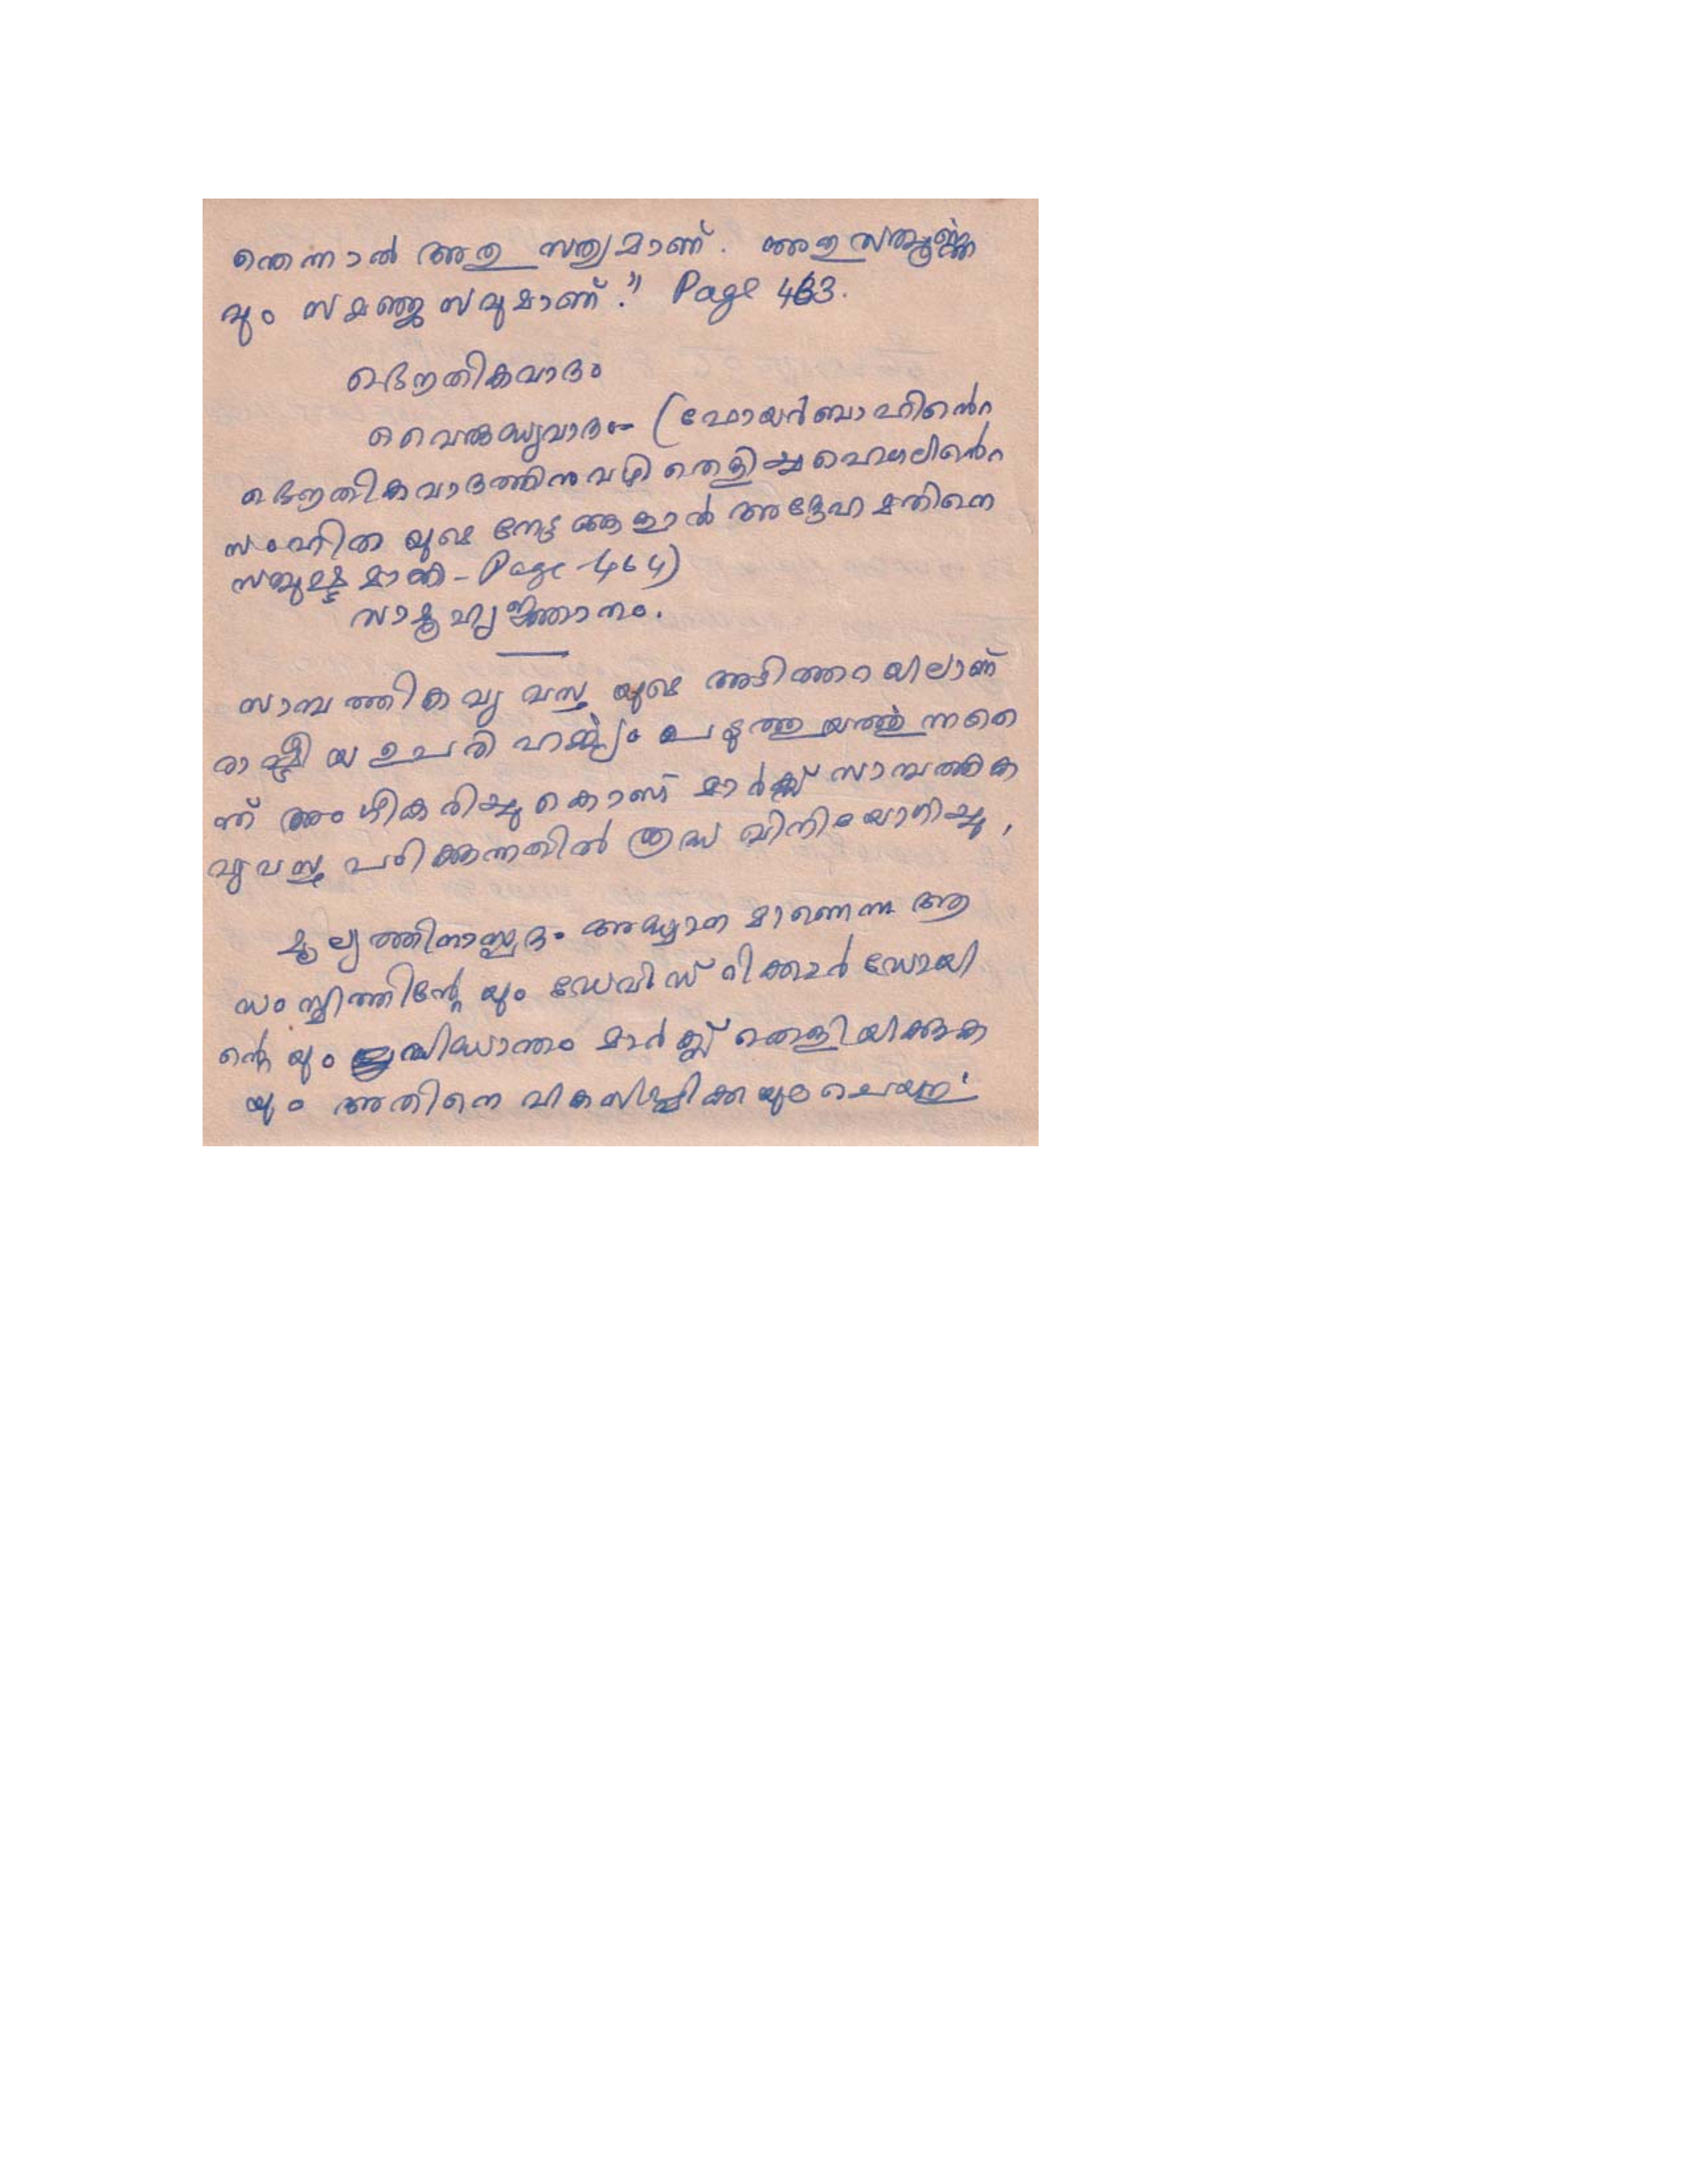 ന്തെന്നാൽ അതു സത്യമാണ്. അതു സമ്പൂർണ്ണ
വും സമഞ്ജസവുമാണ്." Page 463.
ഭൌതികവാദം
വൈരുദ്ധ്യവാദം- (ഫോയർബാഹിൻെറ
ഭൌതികവാദത്തിനു വഴി തെളിച്ച ഹെഗലിൻെറ
സംഹിതയുടെ നേട്ടങ്ങളാൽ അദ്ദേഹമതിനെ
സമ്പുഷ്ടമാക്കി - Page - 464)
സാമൂഹ്യജ്ഞാനം.
സാമ്പത്തികവ്യവസ്ഥയുടെ അടിത്തറയിലാണ്
രാഷ്ട്രീയ ഉപരിഹർമ്മ്യം പടുത്തുയർത്തുന്നതെ
ന്ന് അംഗീകരിച്ചുകൊണ്ട് മാർക്സ് സാമ്പത്തിക
വ്യവസ്ഥ പഠിക്കുന്നതിൽ ശ്രദ്ധ വിനിയോഗിച്ചു,
മൂല്യത്തിനാസ്പദം അദ്ധ്വാനമാണെന്ന ആ
ഡംസ്മിത്തിന്റേയും ഡേവിഡ് റിക്കാർഡോയി
ന്റെയും സിദ്ധാന്തം മാർക്സ് തെളിയിക്കുക
യും അതിനെ വികസിപ്പിക്കയും ചെയ്തു